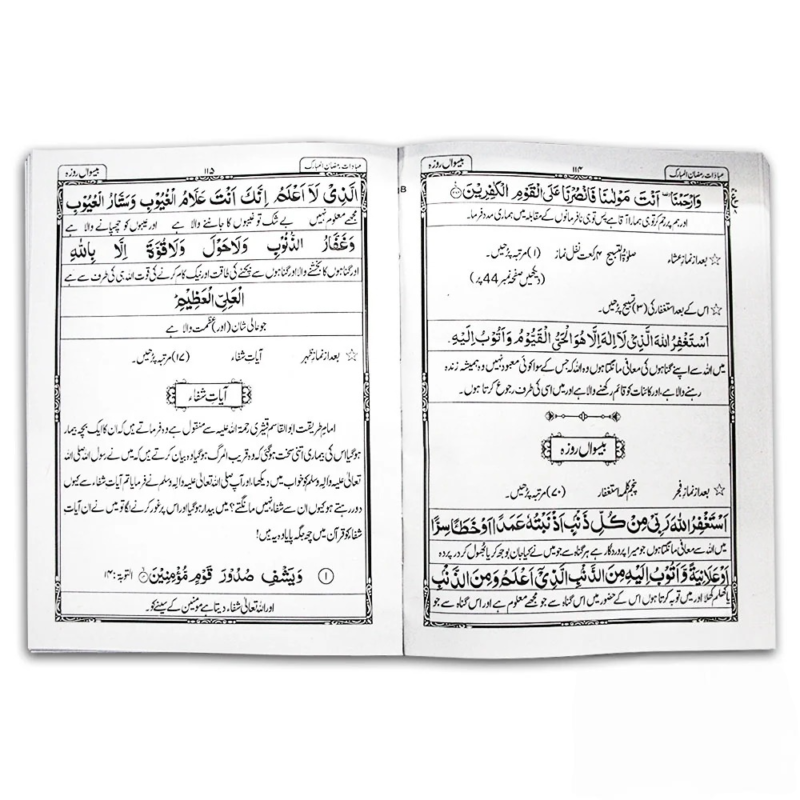 عبادات رمضان المبارک
۱۱۴
بیسواں روزہ
وَارْحَمْنَا اَنْتَ مَوْلٰىنَا فَانْصُرْنَا عَلَى الْقَوْمِ الْكٰفِرِيْنَ
اور ہم پر رحم کر تو ہی ہمارا آقا ہے پس تو ہی نافرمانوں کے مقابلہ میں ہماری مدد فرما۔
☆ بعد از نمازِ عشاء صلوٰۃ التسبیح ۴ رکعت نفل نماز (۱) مرتبہ پڑھیں۔
(دیکھیں صفحہ نمبر 44 پر)
☆ اس کے بعد استغفار کی (۳) تسبیح پڑھیں۔
اَسْتَغْفِرُ اللهَ الَّذِيْ لَا اِلٰهَ اِلَّا هُوَ الْحَيُّ الْقَيُّوْمُ وَاَتُوْبُ اِلَيْهِ.
میں اللہ سے اپنے گناہوں کی معافی مانگتا ہوں وہ اللہ کہ جس کے سوا کوئی معبود نہیں وہ ہمیشہ زندہ
رہنے والا ہے، اور کائنات کو قائم رکھنے والا ہے اور میں اسی کی طرف رجوع کرتا ہوں۔
بیسواں روزہ
☆ بعد از نمازِ فجر پنجم کلمہ استغفار (۷۰) مرتبہ پڑھیں۔
اَسْتَغْفِرُ اللهَ رَبِّيْ مِنْ كُلِّ ذَنْبٍ اَذْنَبْتُهٗ عَمَدًا اَوْ خَطَأً سِرًّا
میں اللہ سے معافی مانگتا ہوں جو میرا پروردگار ہے ہر گناہ سے جو میں نے کیا جان بوجھ کر یا بھول کر در پردہ
اَوْ عَلَانِيَةً وَّاَتُوْبُ اِلَيْهِ مِنَ الذَّنْبِ الَّذِيْ اَعْلَمُ وَمِنَ الذَّنْبِ
یا کھلم کھلا اور میں توبہ کرتا ہوں اس کے حضور میں اس گناہ سے جو مجھے معلوم ہے اور اس گناہ سے جو
عبادات رمضان المبارک
۱۱۵
بیسواں روزہ
الَّذِيْ لَا اَعْلَمُ اِنَّكَ اَنْتَ عَلَّامُ الْغُيُوْبِ وَسَتَّارُ الْعُيُوْبِ
مجھے معلوم نہیں بے شک تو غیبوں کا جاننے والا ہے اور عیبوں کو چھپانے والا ہے
وَغَفَّارُ الذُّنُوْبِ وَلَا حَوْلَ وَلَا قُوَّةَ اِلَّا بِاللهِ
اور گناہوں کا بخشنے والا اور گناہوں سے بچنے کی طاقت اور نیک کام کرنے کی قوت اللہ ہی کی طرف سے ہے
الْعَلِيِّ الْعَظِيْمِ
جو عالی شان (اور) عظمت والا ہے
☆ بعد از نمازِ ظہر آیاتِ شفاء (۱۷) مرتبہ پڑھیں۔
آیات شفاء
امام طریقت ابوالقاسم قشیری رحمۃ اللہ علیہ سے منقول ہے وہ فرماتے ہیں کہ ان کا ایک بچہ بیمار
ہو گیا اس کی بیماری اتنی سخت ہوگئی کہ وہ قریب المرگ ہو گیا وہ بیان کرتے ہیں کہ میں نے رسول اللہ صلی اللہ
تعالیٰ علیہ والہ وسلم کو خواب میں دیکھا، اور آپ صلی اللہ تعالیٰ علیہ والہ وسلم نے فرمایا تم آیات شفاء سے کیوں
دور رہتے ہو کیوں ان سے شفا نہیں مانگتے؟ میں بیدار ہو گیا اور اس پر غور کرنے لگا تو میں نے ان آیات
شفاء کو قرآن میں چھ جگہ پایا وہ یہ ہیں!
۱ وَيَشْفِ صُدُوْرَ قَوْمٍ مُّؤْمِنِيْنَ التوبۃ: ۱۴
اور اللہ تعالیٰ شفاء دیتا ہے مومنین کے سینے کو۔